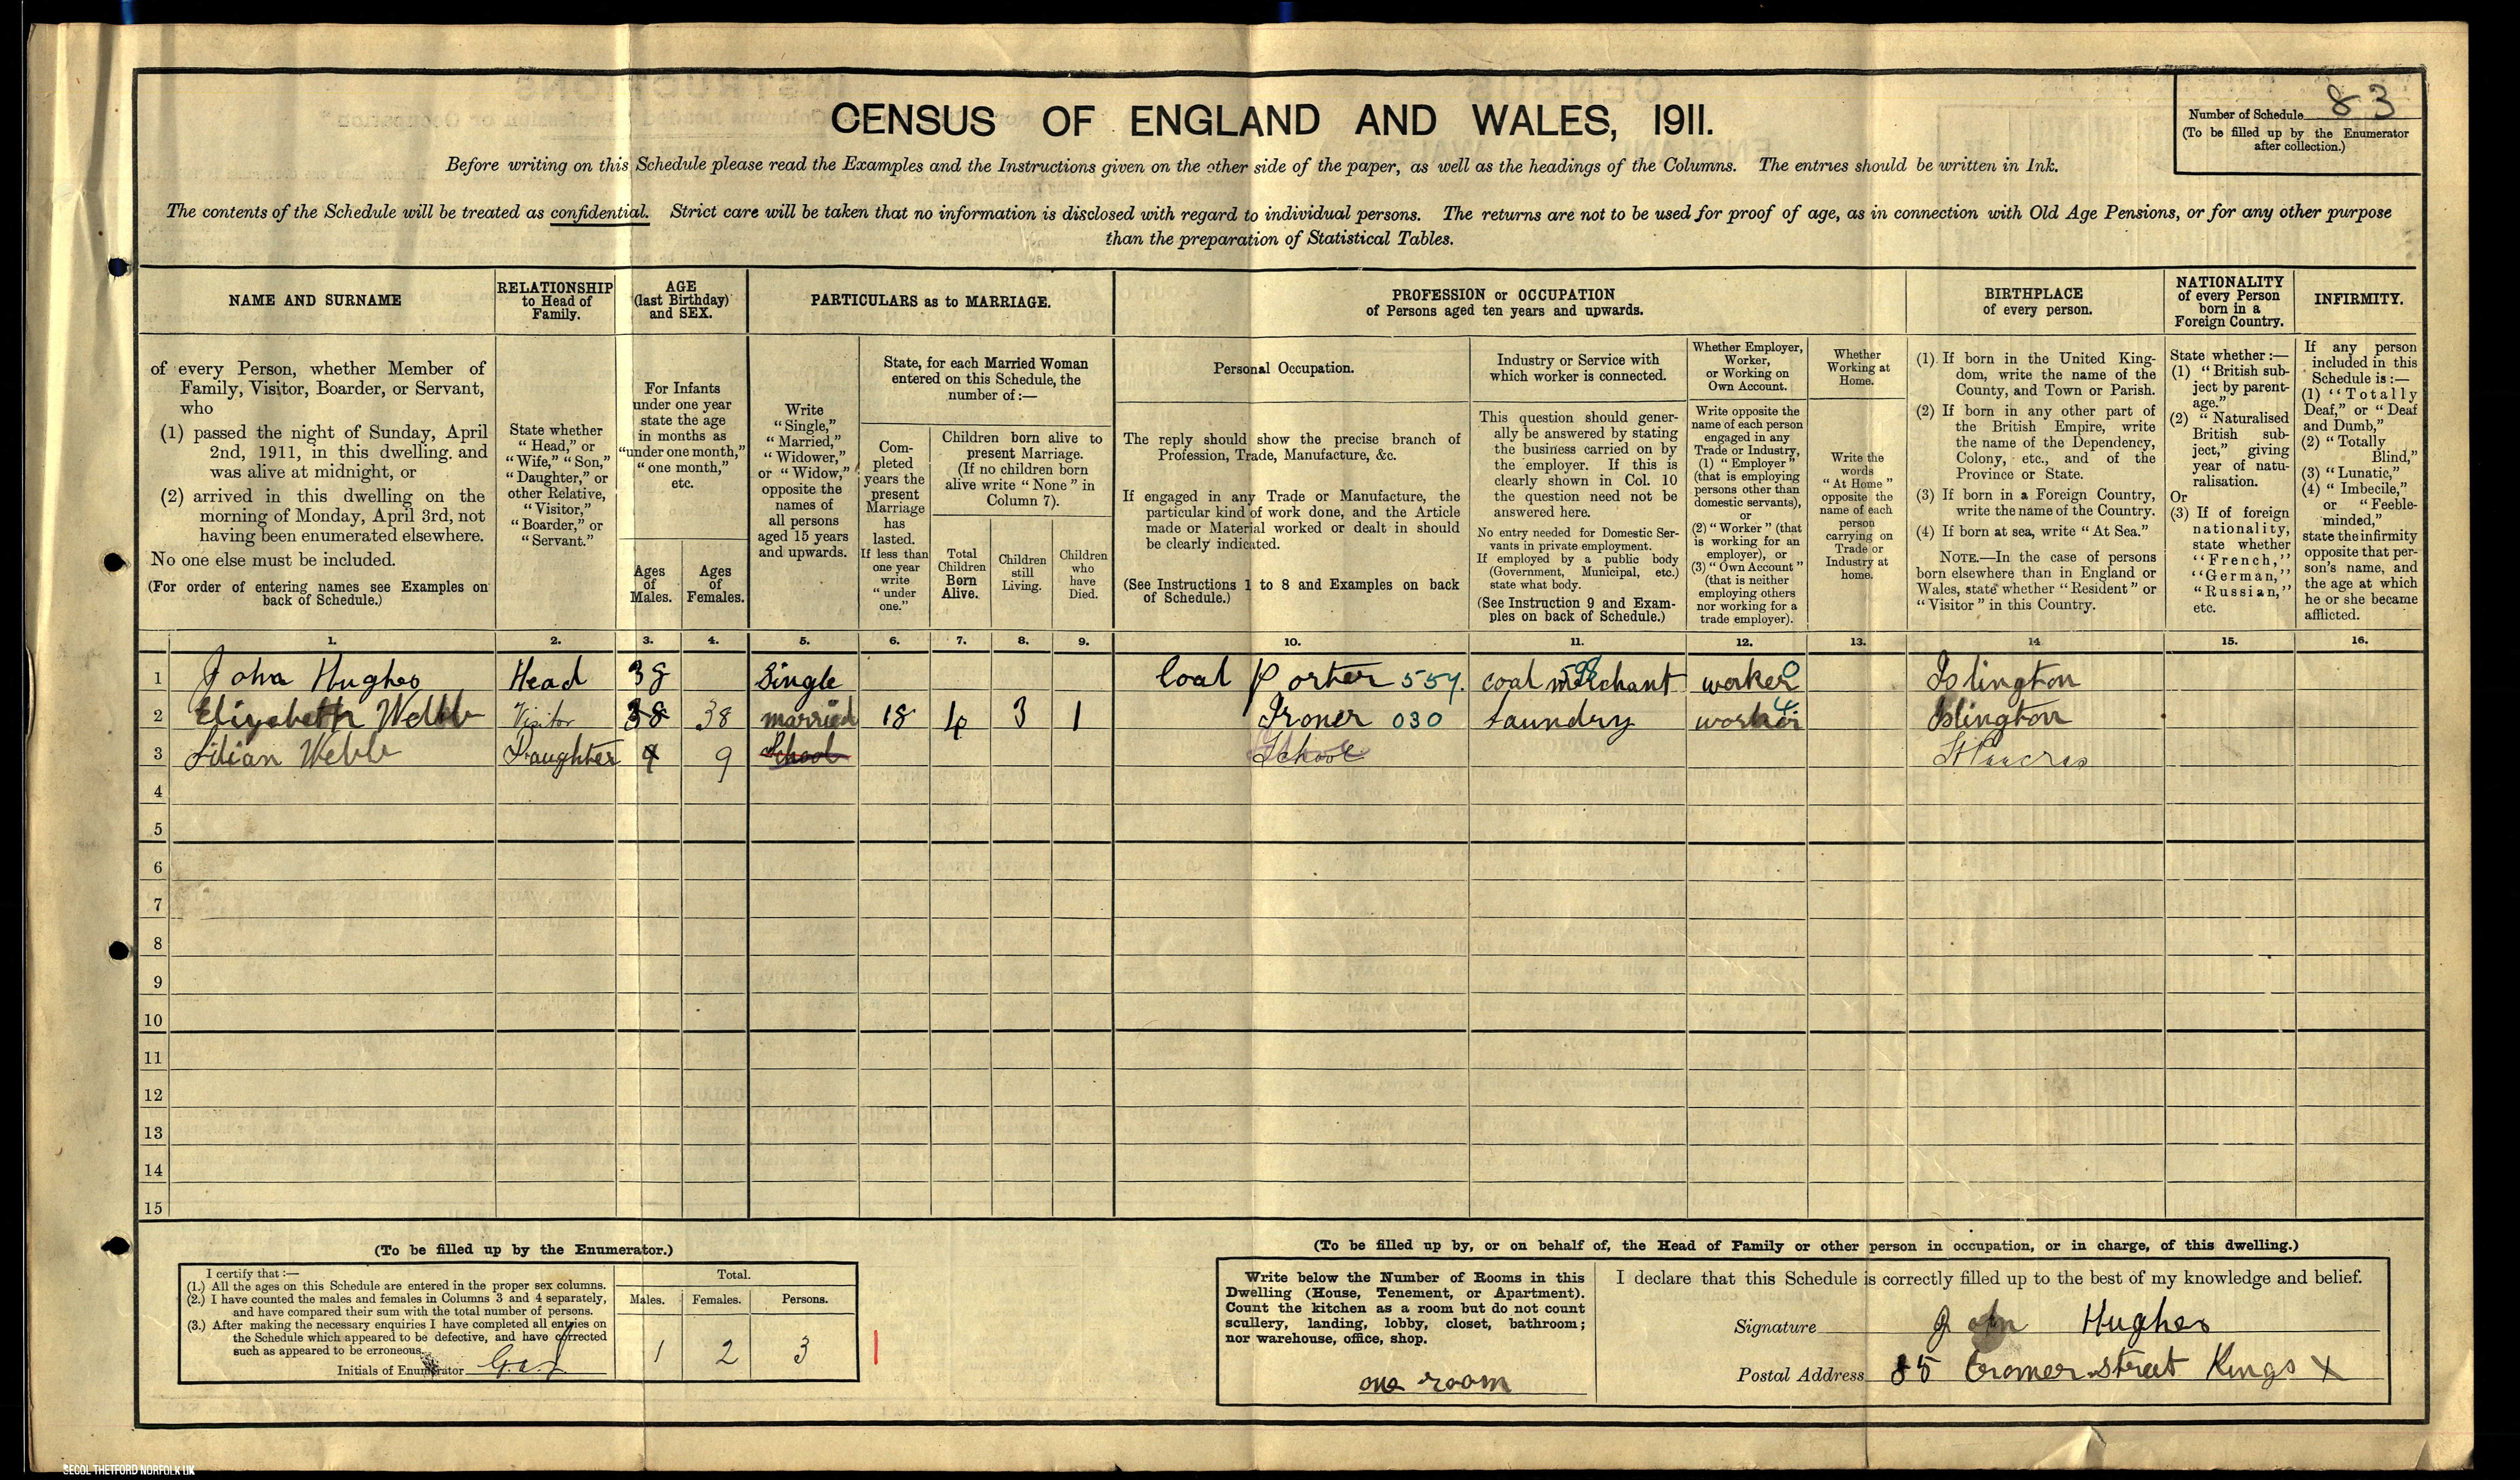 CENSUS OF ENGLAND AND WALES, 1911.
Number of Schedule 83
(To be filled up by the Enumerator
after collection.)
Before writing on this Schedule please read the Examples and the Instructions given on the other side of the paper, as well as the headings of the Columns. The entries should be written in Ink.
The contents of the Schedule will be treated as confidential. Strict care will be taken that no information is disclosed with regard to individual persons. The returns are not to be used for proof of age, as in connection with Old Age Pensions, or for any other purpose
than the preparation of Statistical Tables.
NAME AND SURNAME
of every Person, whether Member of
Family, Visitor, Boarder, or Servant,
who
(1) passed the night of Sunday, April
2nd, 1911, in this dwelling and
was alive at midnight, or
(2) arrived in this dwelling on the
morning of Monday, April 3rd, not
having been enumerated elsewhere.
No one else must be included.
(For order of entering names see Examples on
back of Schedule.)
RELATIONSHIP
to Head of
Family.
State whether
"Head," or
"Wife," "Son,"
"Daughter," or
other Relative,
"Visitor,"
"Boarder," or
"Servant."
AGE
(last Birthday)
and SEX.
For Infants
under one year
state the age
in months as
"under one month,"
"one month,"
etc.
Ages
of
Males.
Ages
of
Females.
PARTICULARS as to MARRIAGE.
Write
"Single,"
"Married,"
"Widower,"
or "Widow,"
opposite the
names of
all persons
aged 15 years
and upwards.
State, for each Married Woman
entered on this Schedule, the
number of:—
Com-
pleted
years the
present
Marriage
has
lasted.
If less than
one year
write
"under
one."
Children born alive to
present Marriage.
(If no children born
alive write "None" in
Column 7).
Total
Children
Born
Alive.
Children
still
Living.
Children
who
have
Died.
PROFESSION or OCCUPATION
of Persons aged ten years and upwards.
Personal Occupation.
The reply should show the precise branch of
Profession, Trade, Manufacture, &c.
If engaged in any Trade or Manufacture, the
particular kind of work done, and the Article
made or Material worked or dealt in should
be clearly indicated.
(See Instructions 1 to 8 and Examples on back
of Schedule.)
Industry or Service with
which worker is connected.
This question should gener-
ally be answered by stating
the business carried on by
the employer. If this is
clearly shown in Col. 10
the question need not be
answered here.
No entry needed for Domestic Ser-
vants in private employment.
If employed by a public body
(Government, Municipal, etc.)
state what body.
(See Instruction 9 and Exam-
ples on back of Schedule.)
Whether Employer,
Worker,
or Working on
Own Account.
Write opposite the
name of each person
engaged in any
Trade or Industry,
(1) "Employer"
(that is employing
persons other than
domestic servants),
or
(2) "Worker" (that
is working for an
employer), or
(3) "Own Account"
(that is neither
employing others
nor working for a
trade employer).
Whether
Working at
Home.
Write the
words
"At Home"
opposite the
name of each
person
carrying on
Trade or
Industry at
home.
BIRTHPLACE
of every person.
(1) If born in the United King-
dom, write the name of the
County, and Town or Parish.
(2) If born in any other part of
the British Empire, write
the name of the Dependency,
Colony, etc., and of the
Province or State.
(3) If born in a Foreign Country,
write the name of the Country.
(4) If born at sea, write "At Sea."
NOTE.—In the case of persons
born elsewhere than in England or
Wales, state whether "Resident" or
"Visitor" in this Country.
NATIONALITY
of every Person
born in a
Foreign Country.
State whether:—
(1) "British sub-
ject by parent-
age."
(2) "Naturalised
British sub-
ject," giving
year of natu-
ralisation.
Or
(3) If of foreign
nationality,
state whether
"French,"
"German,"
"Russian,"
etc.
INFIRMITY.
If any person
included in this
Schedule is:—
(1) "Totally
Deaf," or "Deaf
and Dumb,"
(2) "Totally
Blind,"
(3) "Lunatic,"
(4) "Imbecile,"
or "Feeble-
minded,"
state the infirmity
opposite that per-
son's name, and
the age at which
he or she became
afflicted.
1. 2. 3. 4. 5. 6. 7. 8. 9. 10. 11. 12. 13. 14 15. 16.
1 John Hughes Head 38 Single Coal Porter 557. coal merchant 598 worker 0 Islington
2 Elizabeth Webb Visitor 38 38 married 18 4 3 1 Ironer 030 Laundry worker 4 Islington
3 Lilian Webb Daughter 9 9 School School St Pancras
4
5
6
7
8
9
10
11
12
13
14
15
(To be filled up by the Enumerator.)
I certify that:—
(1.) All the ages on this Schedule are entered in the proper sex columns.
(2.) I have counted the males and females in Columns 3 and 4 separately,
and have compared their sum with the total number of persons.
(3.) After making the necessary enquiries I have completed all entries on
the Schedule which appeared to be defective, and have corrected
such as appeared to be erroneous.
Initials of Enumerator
Total.
Males. Females. Persons.
1 2 3
(To be filled up by, or on behalf of, the Head of Family or other person in occupation, or in charge, of this dwelling.)
Write below the Number of Rooms in this
Dwelling (House, Tenement, or Apartment).
Count the kitchen as a room but do not count
scullery, landing, lobby, closet, bathroom;
nor warehouse, office, shop.
one room
I declare that this Schedule is correctly filled up to the best of my knowledge and belief.
Signature John Hughes
Postal Address 85 Cromer street Kings X
SECOL THETFORD NORFOLK UK